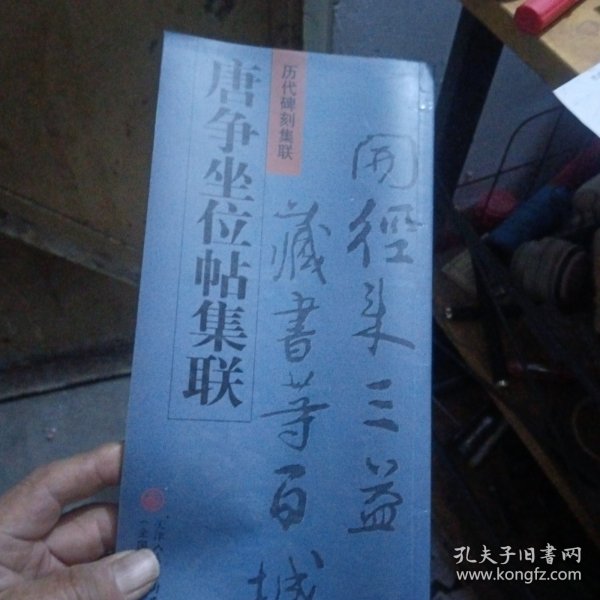 開徑來三益
藏書等百城
历代碑刻集联
唐争坐位帖集联
天津
孔夫子旧书网
www.kongfz.com